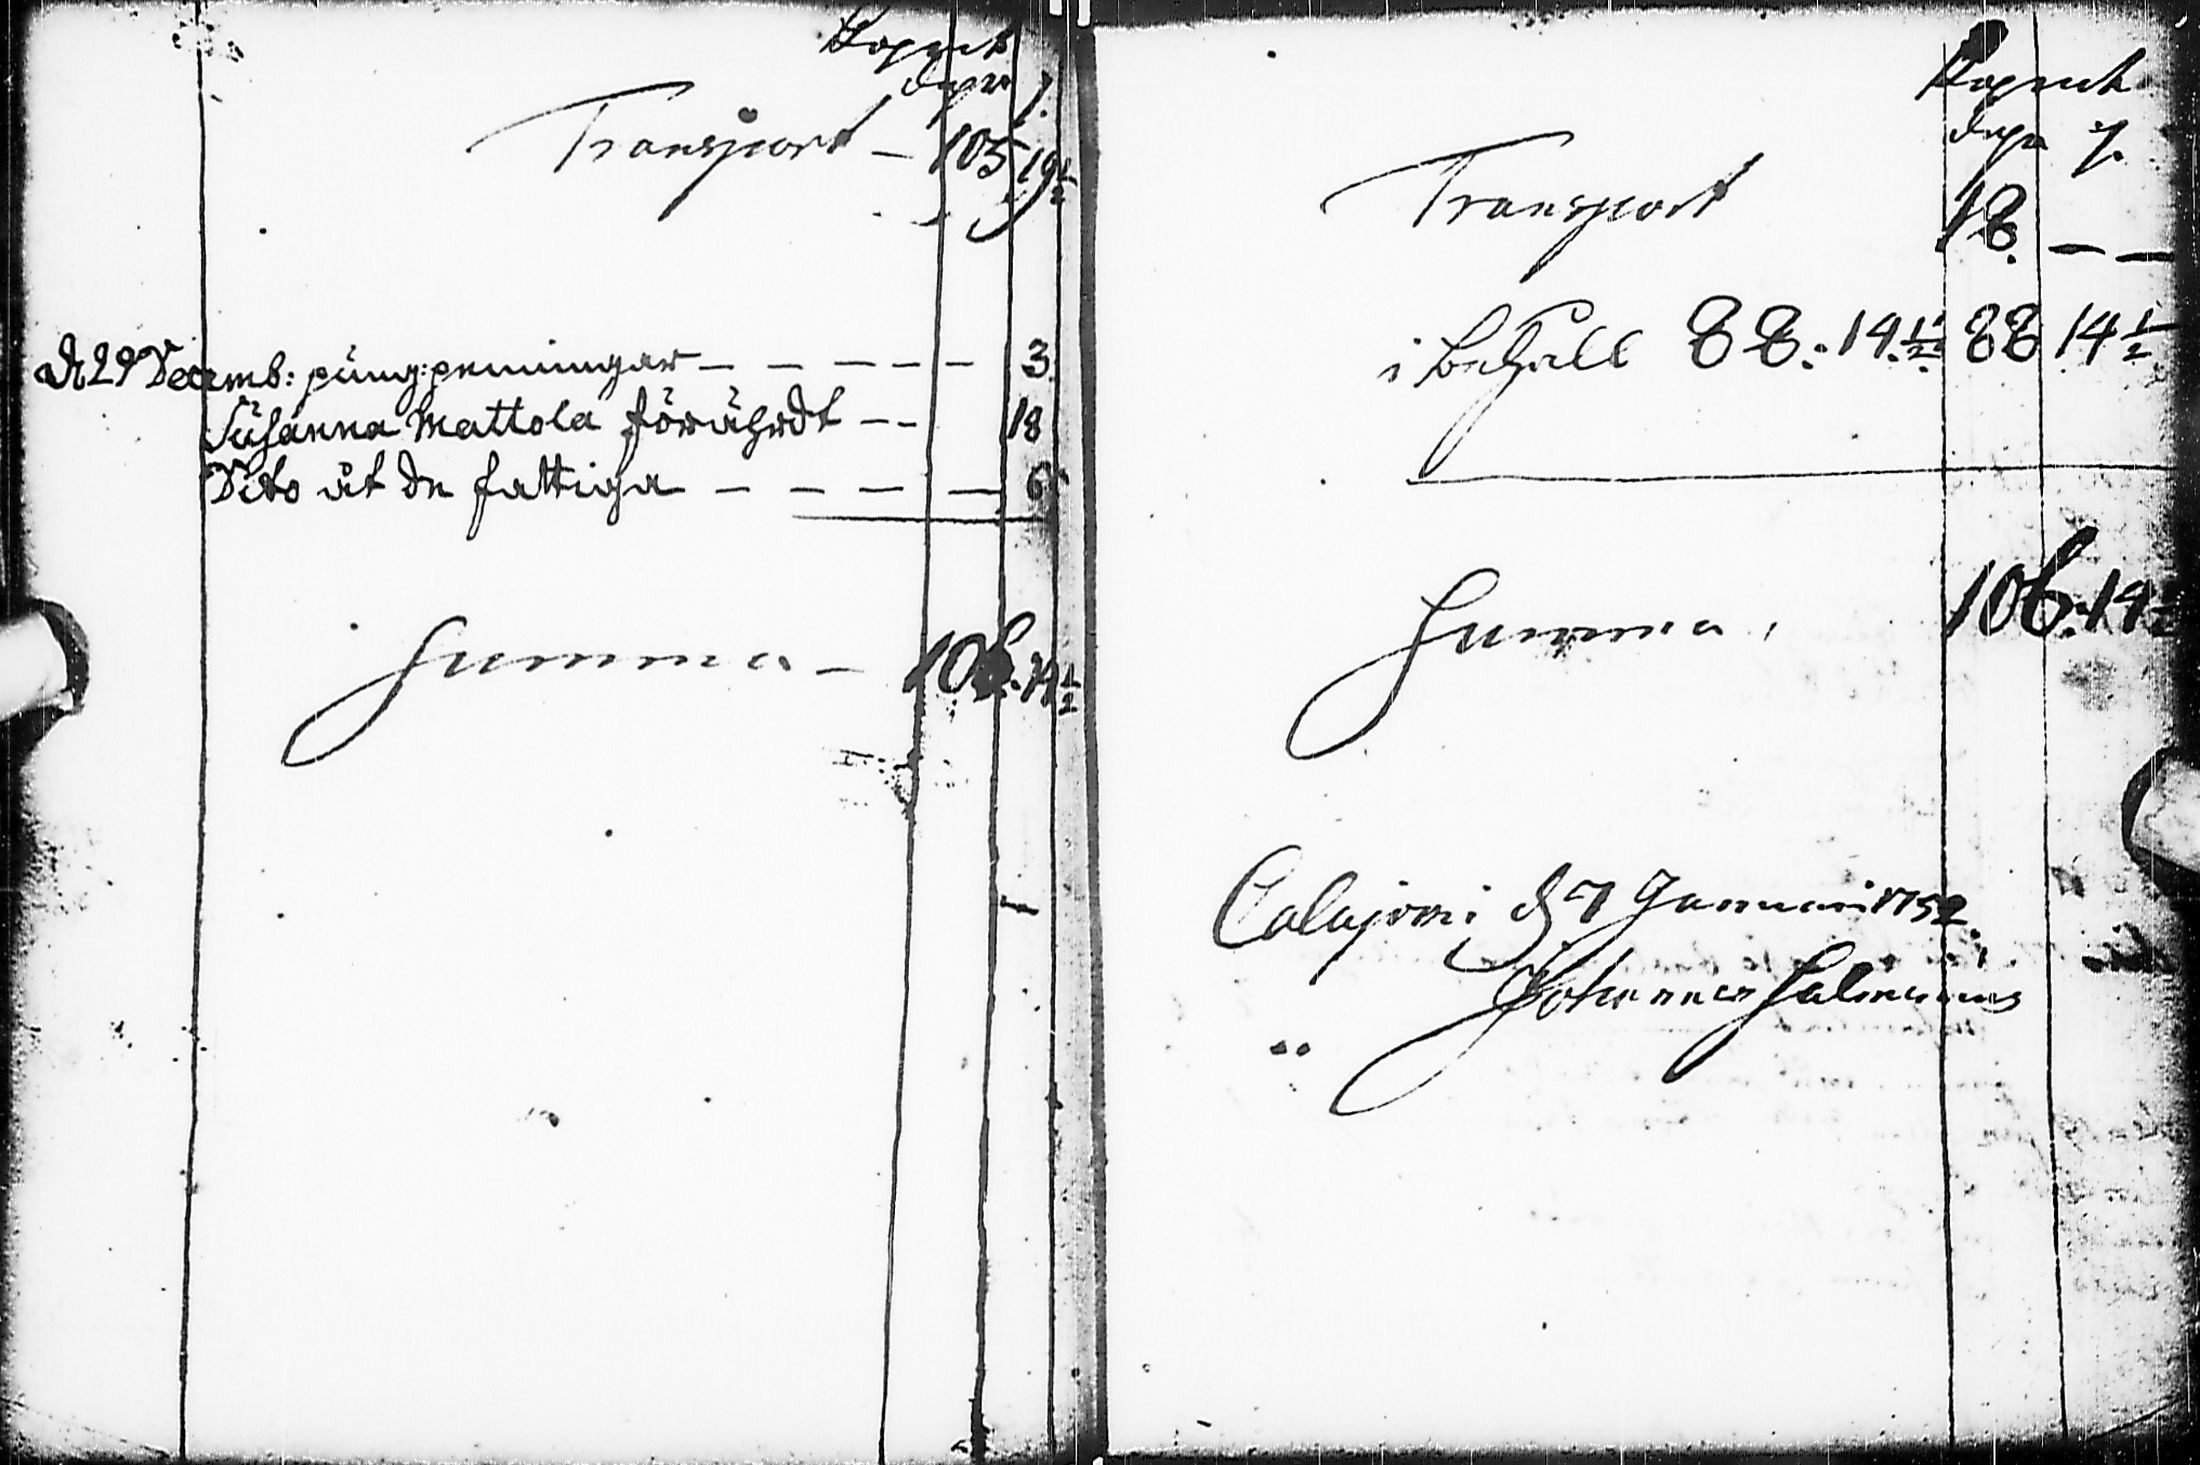 Kopmt
dahr /.
Transport - 105 19 1/2
d 29 Decemb: pung:penningar - - - - - 3.
Susanna Mattola förährdt - - 18
Dito åt de fattiga - - - - 6
Summa - 106. 14 1/2
Kopmt
dahr /.
Transport 18. - -
i behåll 88. 14. 1/2 88 14 1/2
Summa, 106. 14 1/2
Calajoki d 7 Januari 1752.
Johannes Salmenius